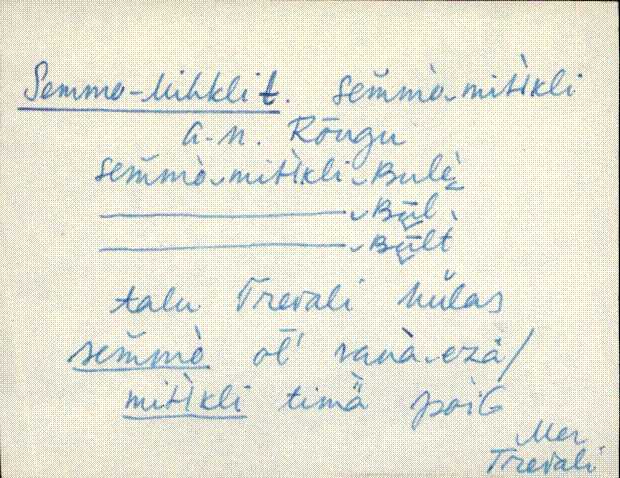 Semmo-Mihkli t. sem̆mò-mitìkli
a-n. Rõngu
sem̆mò-mitìkli-Bulè
-Bul̀
-Bult
talu Trevali külas
sem̆mò ol'l' vanà-ezä/
mitìkli timä poiG
Mer
Trevali